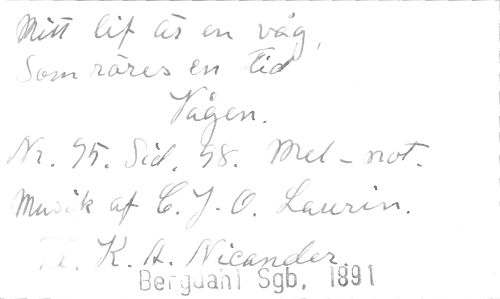 Mitt lif är en våg,
Som röres en tid
Vågen.
Nr. 95. Sid. 98. Mel-not.
Musik af C. J. O. Laurin.
K. A. Nicander.
Bergdahl Sgb. 1891